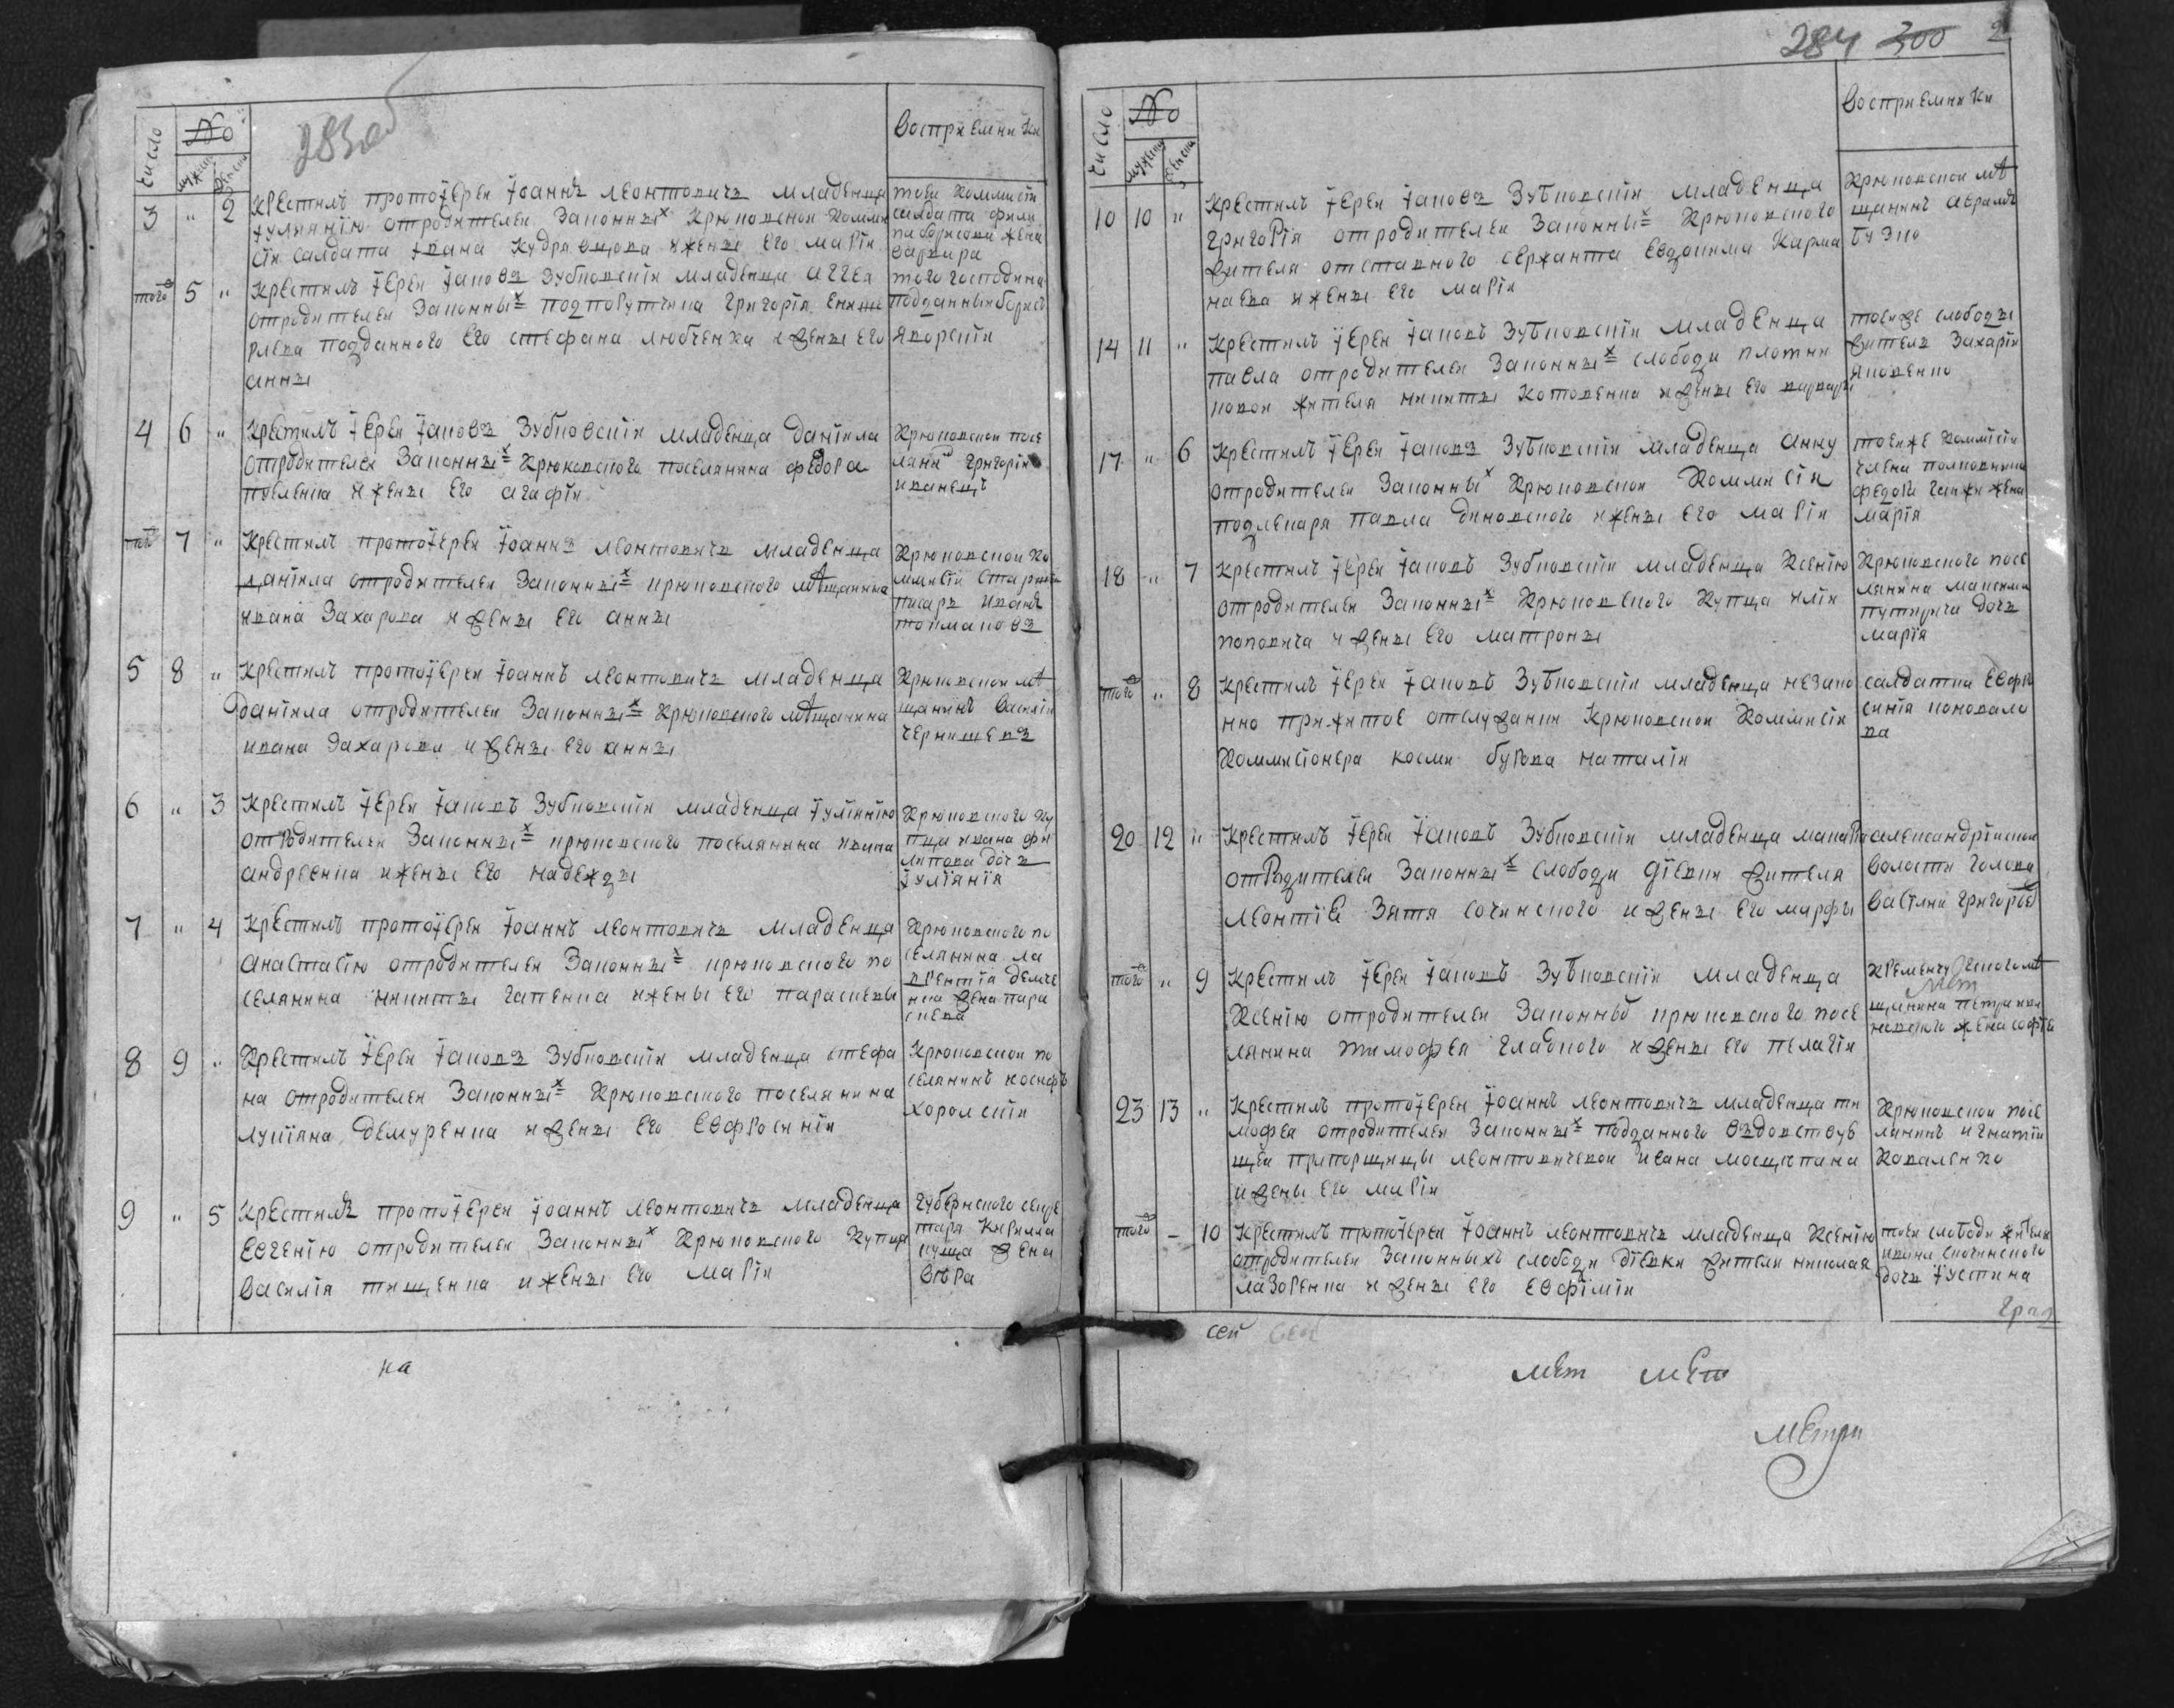 283об
Число
№
мужеска
женска
Восприемники
3 " 2 Крестилъ протоіерей Іоаннъ Леонтовичъ младенца
Іулианію отродителей Законных Крюковской Комми
сіи салдата Ивана Кудрявцова и жены его Маріи
той Коммисіи
салдата фили
па борисова жена
варвара
того 5 " Крестилъ Іерей Іаковъ Зубковскій младенца Аггея
отродителей Законных подпоручика Григорія
подданного его стефана любченка и жены его
анны
того господина
подданный борисъ
яворскій
4 6 " Крестилъ Іерей Іаковъ Зубковскій младенца даніила
отродителей Законных Крюковского поселянина федора
и жены его агафіи
Крюковской посе
лянин Григорій
иванецъ
того 7 " Крестилъ протоіерей Іоаннъ Леонтовичъ младенца
даніила отродителей Законных крюковского мѣщанина
ивана Захарова и жены его анны
Крюковской ко
ммисіи старший
писарь иванъ
толмаповъ
5 8 " Крестилъ протоіерей Іоаннъ Леонтовичъ младенца
даніила отродителей Законных Крюковского мѣщанина
ивана Захарова и жены его анны
Крюковской мѣ
щанинъ василій
чернишевъ
6 " 3 Крестилъ Іерей Іаковъ Зубковскій младенца Іуліянію
отродителей Законных крюковского поселянина ивана
андреенка и жены его надежды
Крюковского ку
пца ивана фи
липова дочь
Іуліянія
7 " 4 Крестилъ протоіерей Іоаннъ Леонтовичъ младенца
анастасію отродителей Законных крюковского по
селянина никиты гапенка и жены его параскевы
Крюковского по
селянина ла
врентіа демче
нка жена пара
скева
8 9 " Крестилъ Іерей Іаковъ Зубковскій младенца стефа
на отродителей Законных Крюковского поселянина
лукіяна демуренка и жены его Евфросиніи
Крюковской по
селянинъ иосифъ
хоролскій
9 " 5 Крестилъ протоіерей Іоаннъ Леонтовичъ младенца
Евгенію отродителей Законных Крюковского Купца
василія тищенка и жены его Маріи
губернского секре
таря Кирилла
куща жена
вѣра
на
284 300 2
Число
№
мужеска
женска
Восприемники
10 10 " Крестилъ Іерей Іаковъ Зубковскій младенца
григорія отродителей Законных Крюковского
жителя отставного сержанта Евдокима Карма
наева и жены его маріи
Крюковской мѣ
щанинъ аврамъ
бузко
14 11 " Крестилъ Іерей Іаковъ Зубковскій младенца
павла отродителей Законных слободы плотни
ковой жителя никиты Котовенка и жены его варвары
тоейже слободы
житель Захарій
яковенко
17 " 6 Крестилъ Іерей Іаковъ Зубковскій младенца анну
отродителей Законных Крюковской Коммисіи
подлекаря павла диковского и жены его маріи
тоейже Коммісіи
члена полковника
федора гаижи жена
марія
18 " 7 Крестилъ Іерей Іаковъ Зубковскій младенца Ксенію
отродителей Законных Крюковского Купца иліи
поповича и жены его матроны
Крюковского посе
лянина максима
путирича дочь
марія
того " 8 Крестилъ Іерей Іаковъ Зубковскій младенца незако
нно прижитое отслужанки Крюковской Коммисіи
Коммисіонера косми бурова наталіи
салдатка Евфро
синія коновало
ва
20 12 " Крестилъ Іерей Іаковъ Зубковскій младенца макарія
отродителей Законных слободы дѣевки жителя
леонтія Зятя сочинского и жены его марфы
александрійской
воласти голова
василій григорьев
того " 9 Крестилъ Іерей Іаковъ Зубковскій младенца
Ксенію отродителей Законных крюковского посе
лянина тимофея гладкого и жены его пелагіи
Кременчугского мѣ
мет
щанина петра
жена софія
23 13 " Крестилъ протоіерей Іоаннъ Леонтовичъ младенца ти
мофея отродителей Законных подданного вздовствую
щей прапорщицы леонтовичевой ивана мосцепана
и жены его маріи
Крюковской посе
лянинъ игнатій
Коваленко
того - 10 Крестилъ протоіерей Іоаннъ Леонтовичъ младенца Ксенію
отродителей Законныхъ слободы дѣевки жителя николая
лазоренка и жены его Евфіміи
тоей слободы жителя
ивана сочинского
дочь Іустина
град
сей сей
мет мет
метри